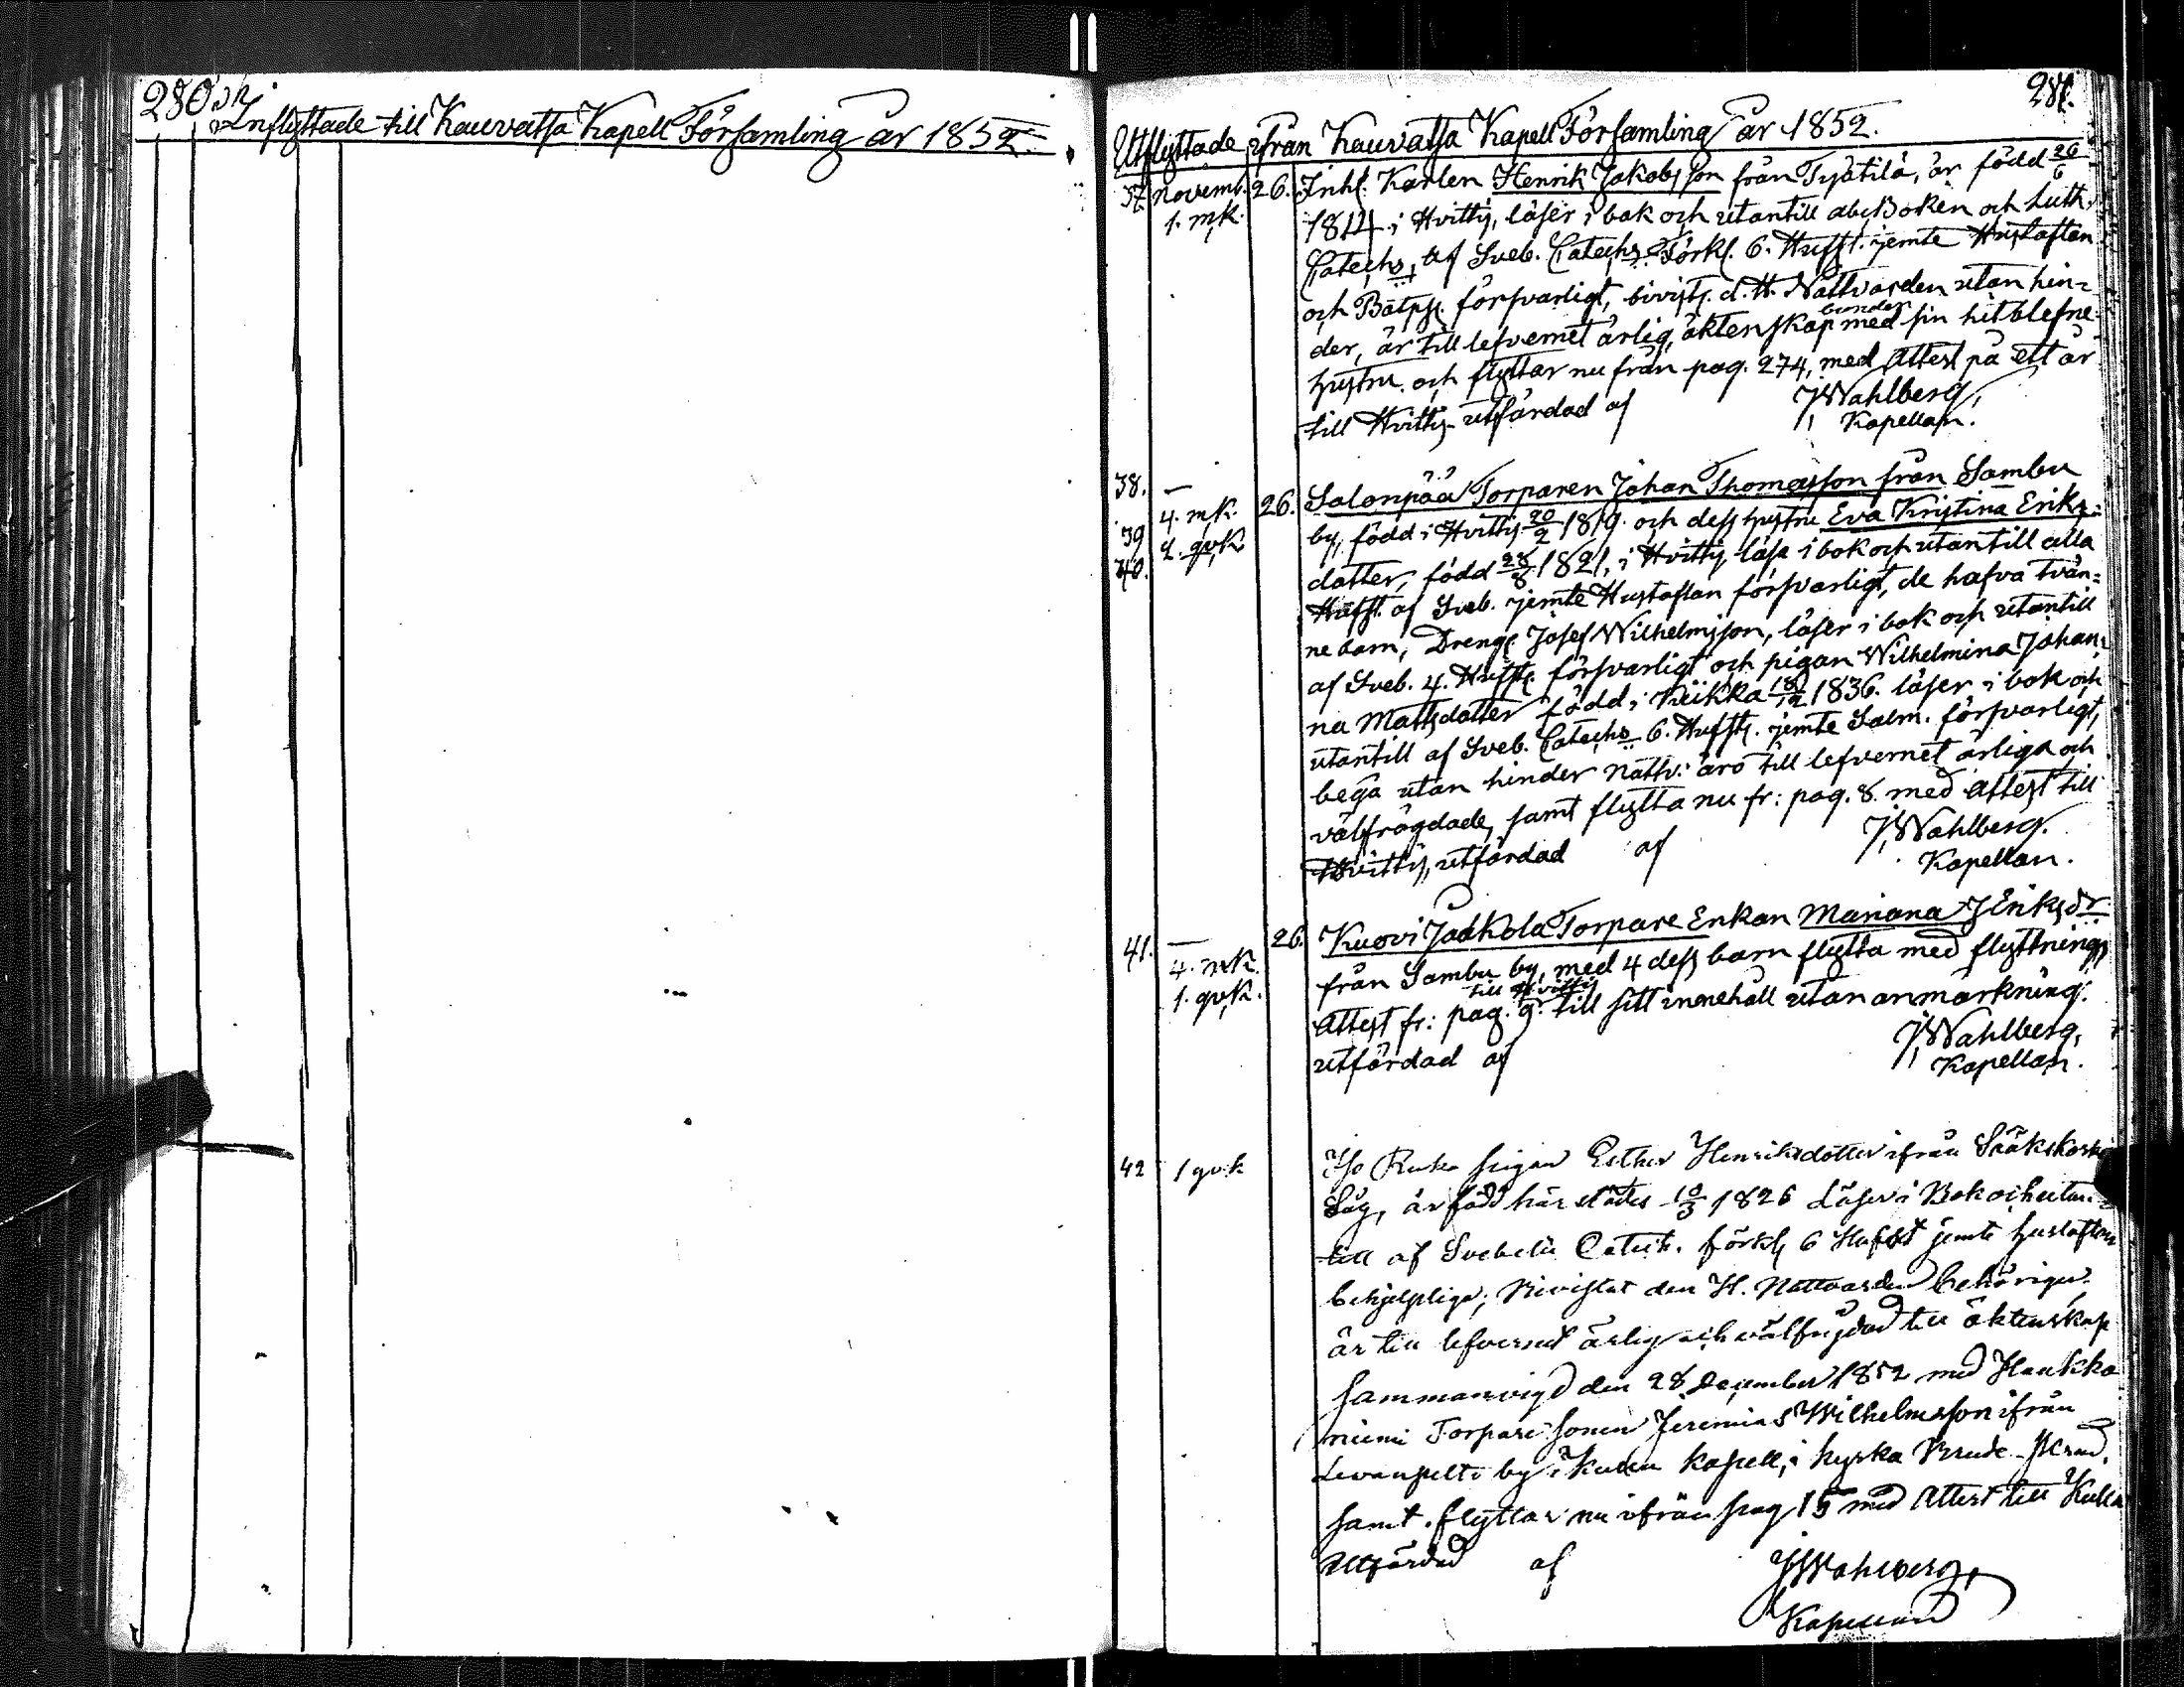 280
Inflyttade till Kauvatsa Kapell Församling år 1852.
281.
Utflyttade ifrån Kauvatsa Kapell Församling år 1852.
37. novemb. 26. Inhs. Karlen Henrik Jakobsson från Tyütilä, är född 26/6
1. mk. 1814 i Hvittis, läser i bok och utantill abcBoken och Luth.
Catechs, af Sveb. Catechs Förkl. 6. Hufst. jemte Hustaflan
och Botps. försvarligt, bivist. d. H. Nattvarden utan hin=
der, är till lefvernet ärlig, äktenskap bunden med sin hitblefne
hustru och flyttar nu från pag. 274, med Attest på ett år
till Hvittis utfärdad af JWahlberg,
Kapellan.
38. — 26. Salonpää Torparen Johan Thomasson från Sambu
4. mk. by, född i Hvittis 20/2 1819. och dess hustru Eva Kristina Eriks=
39 2. qvk dotter, född 28/8 1821, i Hvittis, läsa i bok och utantill alla
40. Hufst. af Sveb. jemte Hustaflan försvarligt, de hafva tvän=
ne barn, Dreng. Josef Wilhelmsson, läser i bok och utantill
af Sveb. 4. Hufst. försvarligt och pigan Wilhelmina Johan=
na Mattsdotter född i Kiikka 18/12 1836. läser i bok och
utantill af Sveb. Catechs 6. Hufst. jemte Salm. försvarligt,
begå utan hinder Nattv: äro till lefvernet ärliga och
välfrägdade, samt flytta nu fr: pag. 8. med Attest till
Hvittis, utfärdad af JWahlberg.
Kapellan.
41. — 26. Kuovi Jaakola Torpare Enkan Mariana J Eriksdr
4. mk. från Sambu by, med 4 dess barn flytta med flyttnings
till Hvittis
1. qvk. Attest fr: pag. 9. till sitt innehåll utan anmärkning.
utfärdad af JWahlberg,
Kapellan.
42 1 qvk Iso Ruka pigan Esther Henriksdotter ifrån Sääkskoski
Såg, är född här städes 10/3 1826 Läser i Bok och utan=
till af Svebelii Catech. förkl 6 Hufst jemte hustaflan
behjelpliga; Bivistat den H. Nattvarden behörigen.
är till lefvernet ärlig och välfrejdad till äktenskap
sammanvigd den 28 December 1852 med Haukka
niemi Torpare sonen Jeremias Wilhelmsson ifrån
Levanpelto by i Kulla Kapell, i kyrka Brude
samt flyttar nu ifrån pag 15 med Attest till Kulla
Utfärdad af JWahlberg,
Kapellan